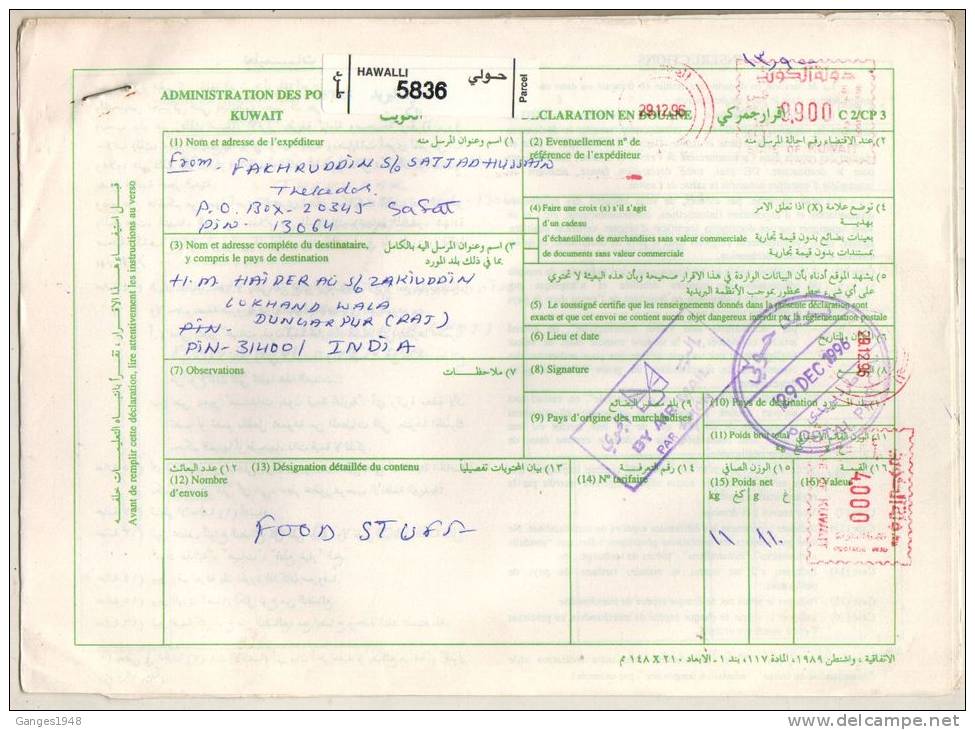 HAWALLI حولي
5836
Parcel
ADMINISTRATION DES PO
KUWAIT
الكويت
29.12.96
DECLARATION EN DOUANE
إقرار جمركي
0,900
C 2/CP 3
دولة الكويت
(1) Nom et adresse de l'expéditeur
١) اسم وعنوان المرسل منه
From - FAKHRUDDIN S/o SAJJAD HUSSAIN
P.O. BOX - 20345 Safat
PIN - 13064
(2) Eventuellement n° de
référence de l'expéditeur
٢) عند الاقتضاء رقم احالة المرسل منه
(4) Faire une croix (x) s'il s'agit
٤) توضع علامة (X) اذا تعلق الامر
d'un cadeau
بهدية
d'échantillons de marchandises sans valeur commerciale
بعينات بضائع بدون قيمة تجارية
de documents sans valeur commerciale
بمستندات بدون قيمة تجارية
(3) Nom et adresse complète du destinataire,
y compris le pays de destination
٣) اسم وعنوان المرسل اليه بالكامل
بما في ذلك بلد المورد
H.M HAIDER ALI S/o ZAKIUDDIN
LOKHAND WALA
PIN - DUNGARPUR (RAJ)
PIN - 314001 INDIA
٥) يشهد الموقع أدناه بأن البيانات الواردة في هذا الاقرار صحيحة وبأن هذه البعيثة لا تحتوي
على أي شيء خطر محظور بموجب الأنظمة البريدية
(5) Le soussigné certifie que les renseignements donnés dans la présente déclaration sont
exacts et que cet envoi ne contient aucun objet dangereux interdit par la réglementation postale
(6) Lieu et date
(7) Observations
٧) ملاحظات
(8) Signature
(9) Pays d'origine des marchandises
٩) بلد مصدر البضائع
(10) Pays de destination
(11) Poids brut total
BY AIR
PAR
29 DEC 1996
29.12.96
4,000
KUWAIT
١٢) عدد البعائث
(12) Nombre
d'envois
(13) Désignation détaillée du contenu
١٣) بيان المحتويات تفصيليا
١٤) رقم التعرفة
(14) N° tarifaire
١٥) الوزن الصافي
(15) Poids net
kg كغ g غ
١٦) القيمة
(16) Valeur
FOOD STUFF
11 11.
الاتفاقية ، واشنطن ١٩٨٩، المادة ١١٧، بند ١ - الأبعاد ٢١٠ X ١٤٨ م م
قبل استيفاء هذا الاقرار، تقرأ بانتباه التعليمات خلفه
Avant de remplir cette déclaration, lire attentivement les instructions au verso
Ganges1948
delcampe.net